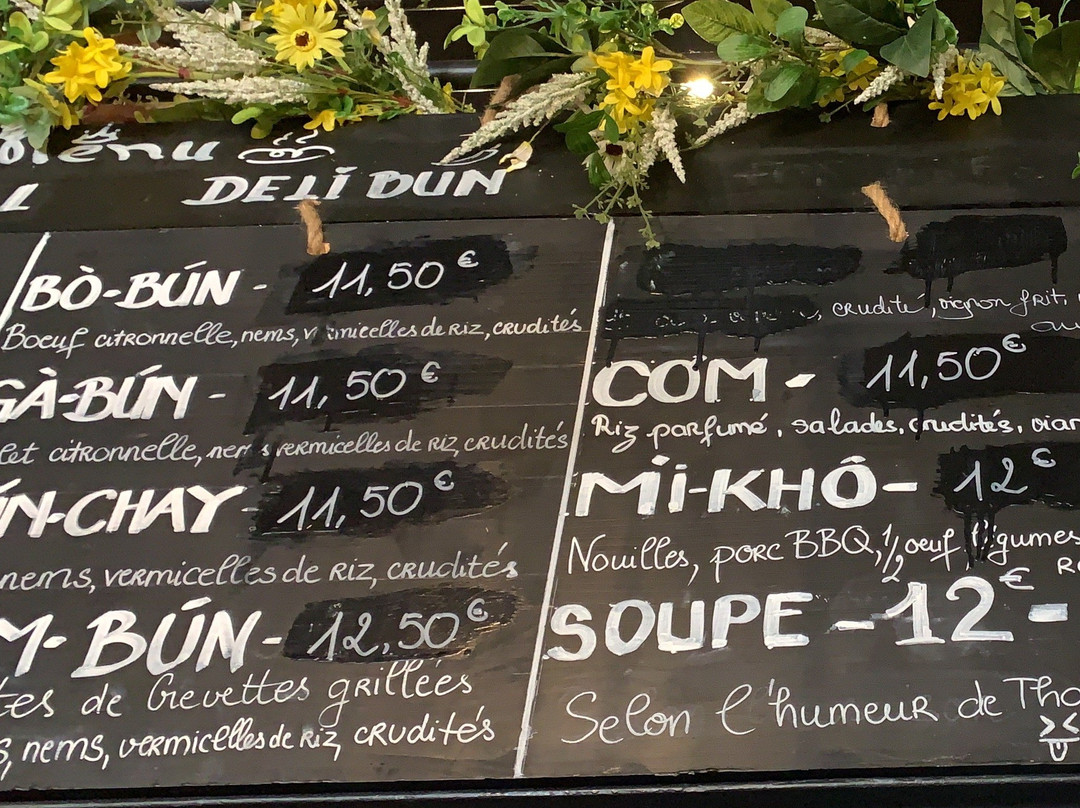 Menu
DELI BUN
BÒ-BÚN - 11,50 €
Boeuf citronnelle, nems, vermicelles de Riz, crudités
GÀ-BÚN - 11,50 €
let citronnelle, nems vermicelles de Riz, crudités
N-CHAY - 11,50 €
nems, vermicelles de Riz, crudités
M-BÚN - 12,50 €
tes de Crevettes grillées
s, nems, vermicelles de Riz, crudités
crudité, oignon frit,
COM - 11,50 €
Riz parfumé, salades, crudités, vian
MÌ-KHÔ - 12 €
Nouilles, porc BBQ, 1/2 oeuf, légumes
SOUPE - 12 € -
Selon l'humeur de Tho